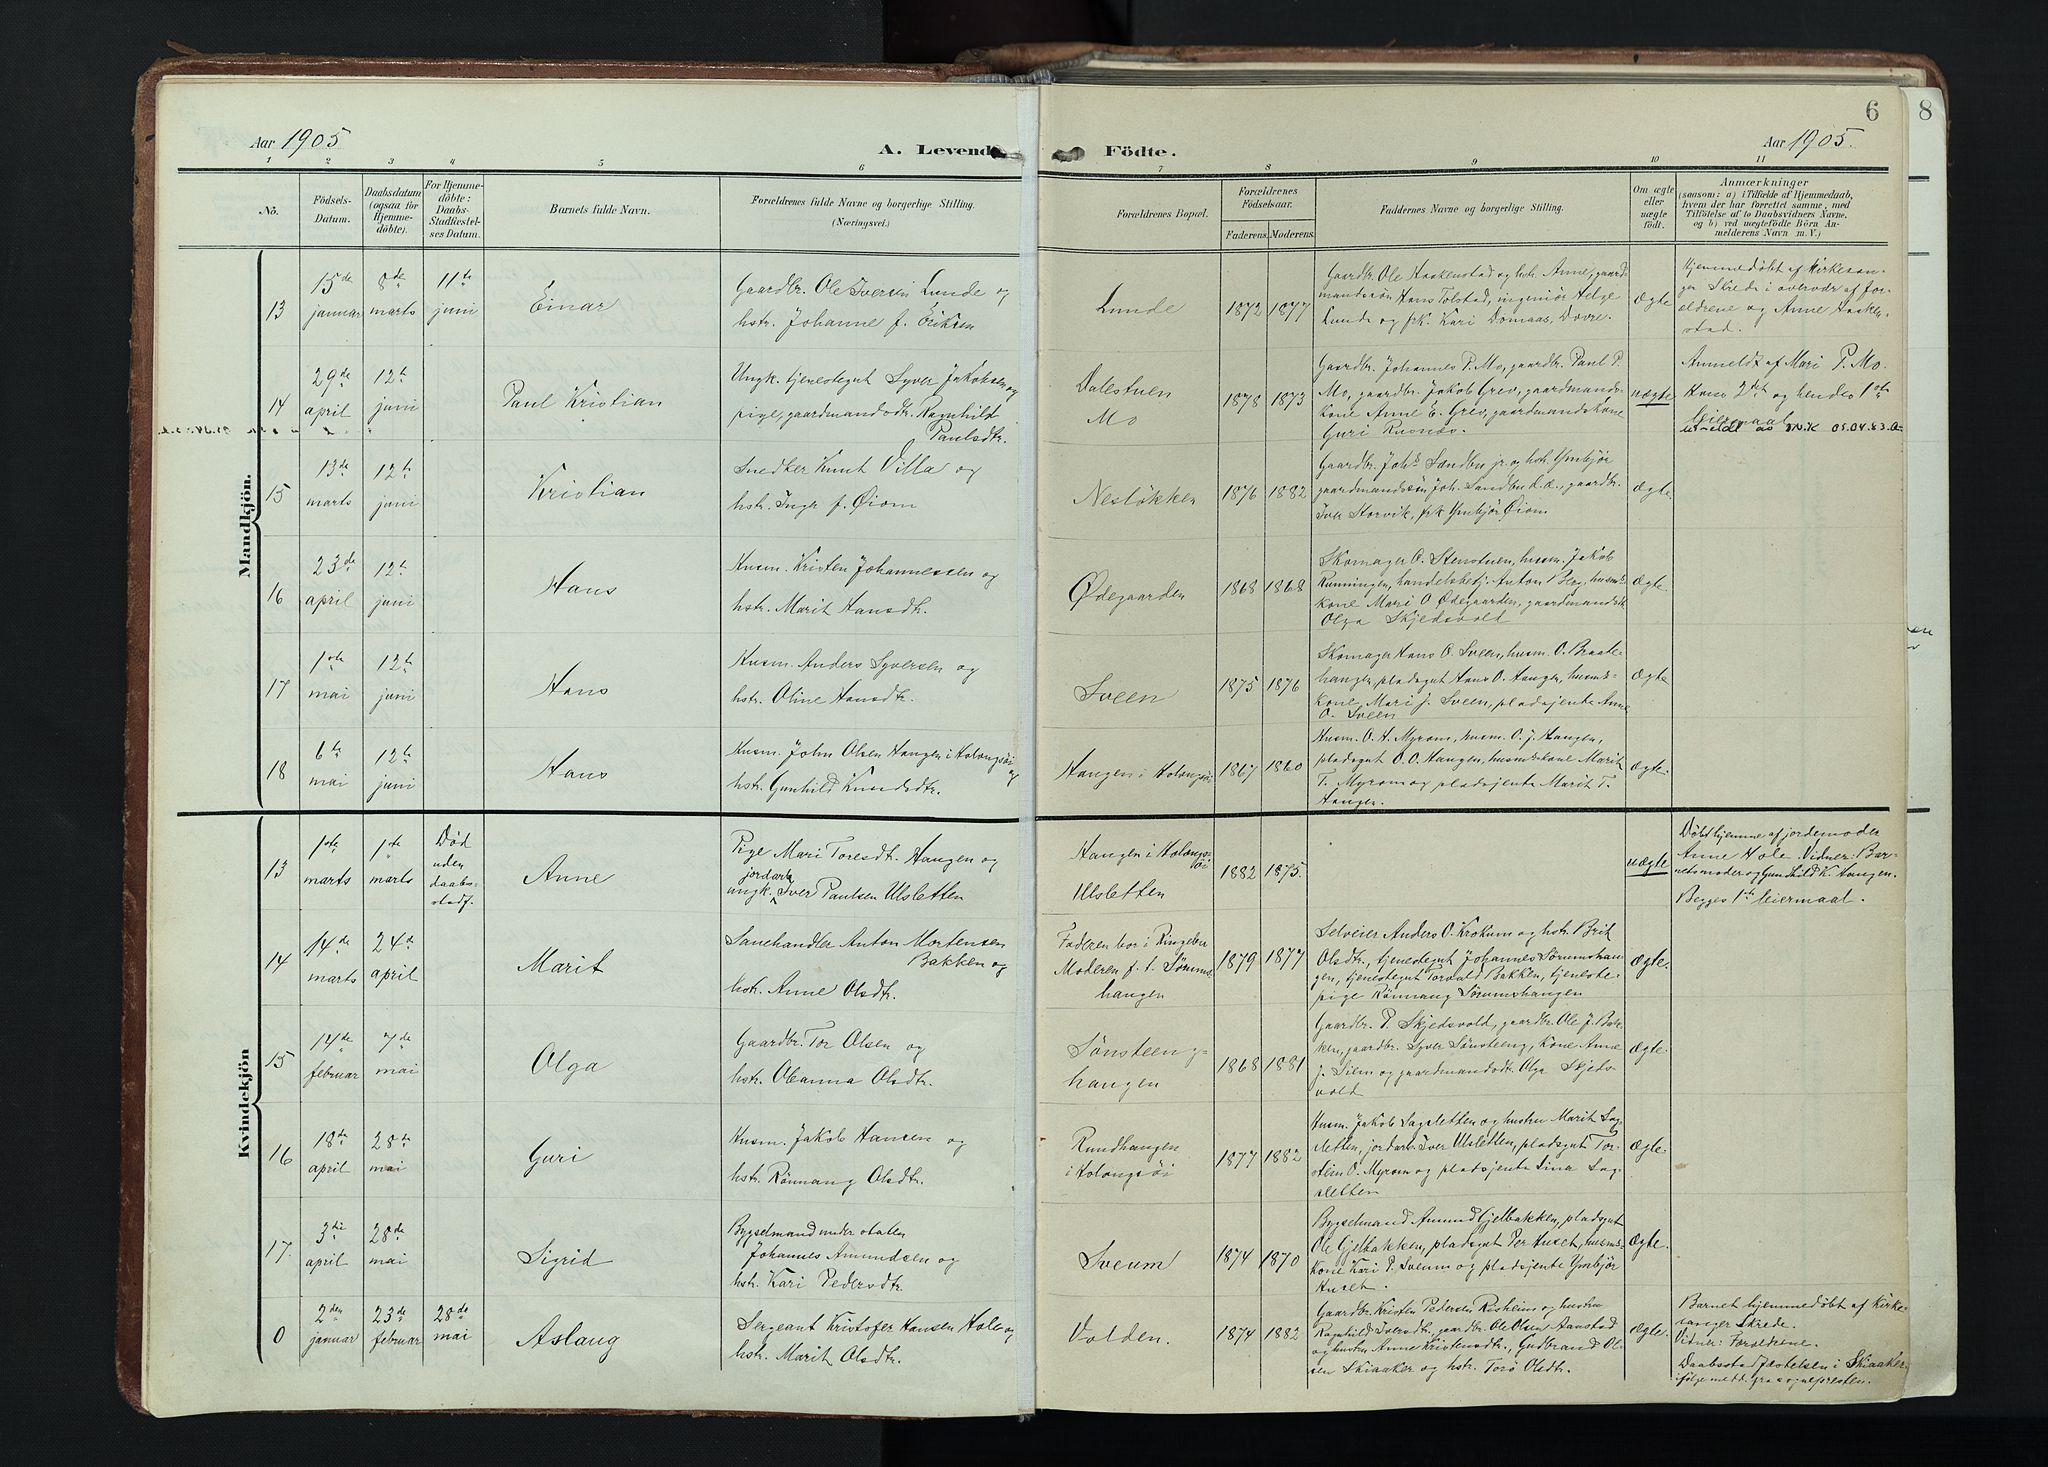 Aar 1905
A. Levende
Födte.
Aar 1905.
6
8
1 2 3 4 5 6 7 8 9 10 11
No.
Födsels-
Datum.
Daabsdatum
(ogsaa for
Hjemme-
döbte).
For Hjemme-
döbte:
Daabs-
Stadfæstel-
ses Datum.
Barnets fulde Navn.
Forældrenes fulde Navne og borgerlige Stilling.
(Næringsvei.)
Forældrenes Bopæl.
Forældrenes
Födselsaar.
Faderens. Moderens.
Faddernes Navne og borgerlige Stilling.
Om ægte
eller
uægte
født.
Anmærkninger
(saasom: a) i Tilfælde af Hjemmedaab,
hvem der har forrettet samme, med
Tilföielse af to Daabsvidners Navne,
og b) ved uægtefödte Börn An-
melderens Navn m. V.)
Mandkjön.
13
15de
januar
8de
marts
11te
juni
Einar
Gaardbr. Ole Iversen Lunde og
hstr. Johanne f. Eriksen
Lunde
1872 1877
Gaardbr. Ole Haakenstad og hstr. Anne, gaard-
mandssøn Hans Tolstad, ingeniör Helge
Lunde og frk. Kari Domaas, Dovre.
Ægte
Hjemmedøbt af kirkesan-
ger Skrede i overvær af for-
ældrene og Anne Haaken-
stad.
14
29de
april
12te
juni
Paul Kristian
Ungk. tjenestegut Syver Jakobsen og
pige, gaardmandsdtr. Ragnhild
Paulsdtr.
Dalestuen
Mo
1878 1873
Gaardbr. Johannes P. Mo, gaardbr. Paul P.
Mo, gaardbr. Jakob Grev, gaardmands-
kone Anne E. Grev, gaardmandskone
Guri Rusnæs.
uægte
Anmeldt af Mari P. Mo.
Hans 2det og hendes 1ste
leiermaal
15
13de
marts
12te
juni
Kristian
Snedker Knut Villa og
hstr. Ingr f. Øiom
Nesløkken
1876 1882
Gaardbr. Johs Sandbu jr. og hstr. Ymbjør
gaardmandssøn Joh. Sandbu s. s., gaardbr.
Iver Storvik, frk Ymbjör Øiom
Ægte
16
23de
april
12te
juni
Hans
Husm. Kristen Johannessen og
hstr. Marit Hansdtr.
Ødegaarden
1868 1868
Skomager O. Stenstuen, husm. Jakob
Runningen, handelsbetj. Anton Berg, husms-
kone Mari O. Ødegaarden, gaardmandsdtr.
Olga Skjedsvold
Ægte
17
1ste
mai
12te
juni
Hans
Husm. Anders Syversen og
hstr. Oline Hansdtr.
Sveen
1875 1876
Skomager Hans O. Sveen, husm. O. Braate-
hangen, pladsgut Hans O. Haugen, husms-
kone Mari J. Sveen, pladsjente Anne
O. Sveen
Ægte
18
6te
mai
12te
juni
Hans
Husm. John Olsen Haugen i Holongsöi
og
hstr. Gunhild Knudsdtr.
Haugen i Holongsöi
1867 1860
Husm. O. H. Myrom, husm. O. J. Haugen,
pladsgut O. O. Haugen, husmandskone Marit
T. Myrom og pladsjente Marit T.
Haugen.
Ægte
Kvindekjön
13
1ste
marts
1ste
marts
Død
uden
daabs-
stadf.
Anne
Pige Mari Toresdtr. Haugen og
jordarb.
ungk. Iver Paulsen Ulsletten
Haugen i Holongs-
öi
Ulsletten
1882 1875.
uægte
Døbt hjemme af jordemoder
Anne Hole. Vidner: Bar-
netsmoder og Gunhild K. Haugen.
Begges 1ste leiermaal.
14
14de
marts
24de
april
Marit
Sauehandler Anton Mortensen
Bakken og
hstr. Anne Olsdtr.
Faderen bor i Ringebu
Moderen f. t. Sørums-
haugen
1879 1877
Selveier Anders O. Krokum og hstr. Brit
Olsdtr., tjenestegut Johannes Sørumshau-
gen, tjenestegut Torvald Bakken, tjeneste-
pige Rønnaug Sørumshaugen
Ægte.
15
14de
februar
7de
mai
Olga
Gaardbr. Tor Olsen og
hstr. Oleanna Olsdtr.
Sønsteeng-
haugen
1868 1881
Gaardbr. P. Skjedsvold, gaardbr. Ole J. Bak-
ken, gaardbr. Syver Sønsteeng, Kone Anne
J. Siem og gaardmandsdtr. Olga Skjeds-
vold
Ægte
16
18de
april
28de
mai
Guri
Husm. Jakob Hansen og
hstr. Rönnaug Olsdtr.
Rundhaugen
i Holongsöi
1877 1882
Husm. Jakob Sagsletten og hustru Marit Sag-
sletten, jordarb. Iver Ulsletten, pladsgut Tor-
stein O. Myrom og pladsjente Lina Sag-
sletten
Ægte
17.
3die
april
28de
mai
Sigrid
Bygselmand under staten
Johannes Amundsen og
hstr. Kari Pedersdtr.
Sveum
1874 1870
Bygselmand Amund Gjelbakken, pladsgut
Ole Gjelbakken, pladsgut Per Huset, husms-
kone Kari P. Sveum og pladsjente Ymbjör
Huset.
Ægte.
0
2den
januar
23de
februar
28de
mai
Aslaug
Sergeant Kristofer Hansen Hole og
hstr. Marit Olsdtr.
Volden.
1874 1882
Gaardbr. Kristen Pedersen Risheim og hustru
Ragnhild Iversdtr., gaardbr. Ole Olsen Aanstad
og hustru Anne Kristensdtr., Gudbrand Ol-
sen Skiaaker og hstr. Toro Olsdtr.
Ægte.
Barnet hjemmedøbt af kirke-
sanger Skrede.
Vidner: Forældrene.
Daabsstadfæstelsen i Skiaaker
ifölge medd. fra sognepresten.